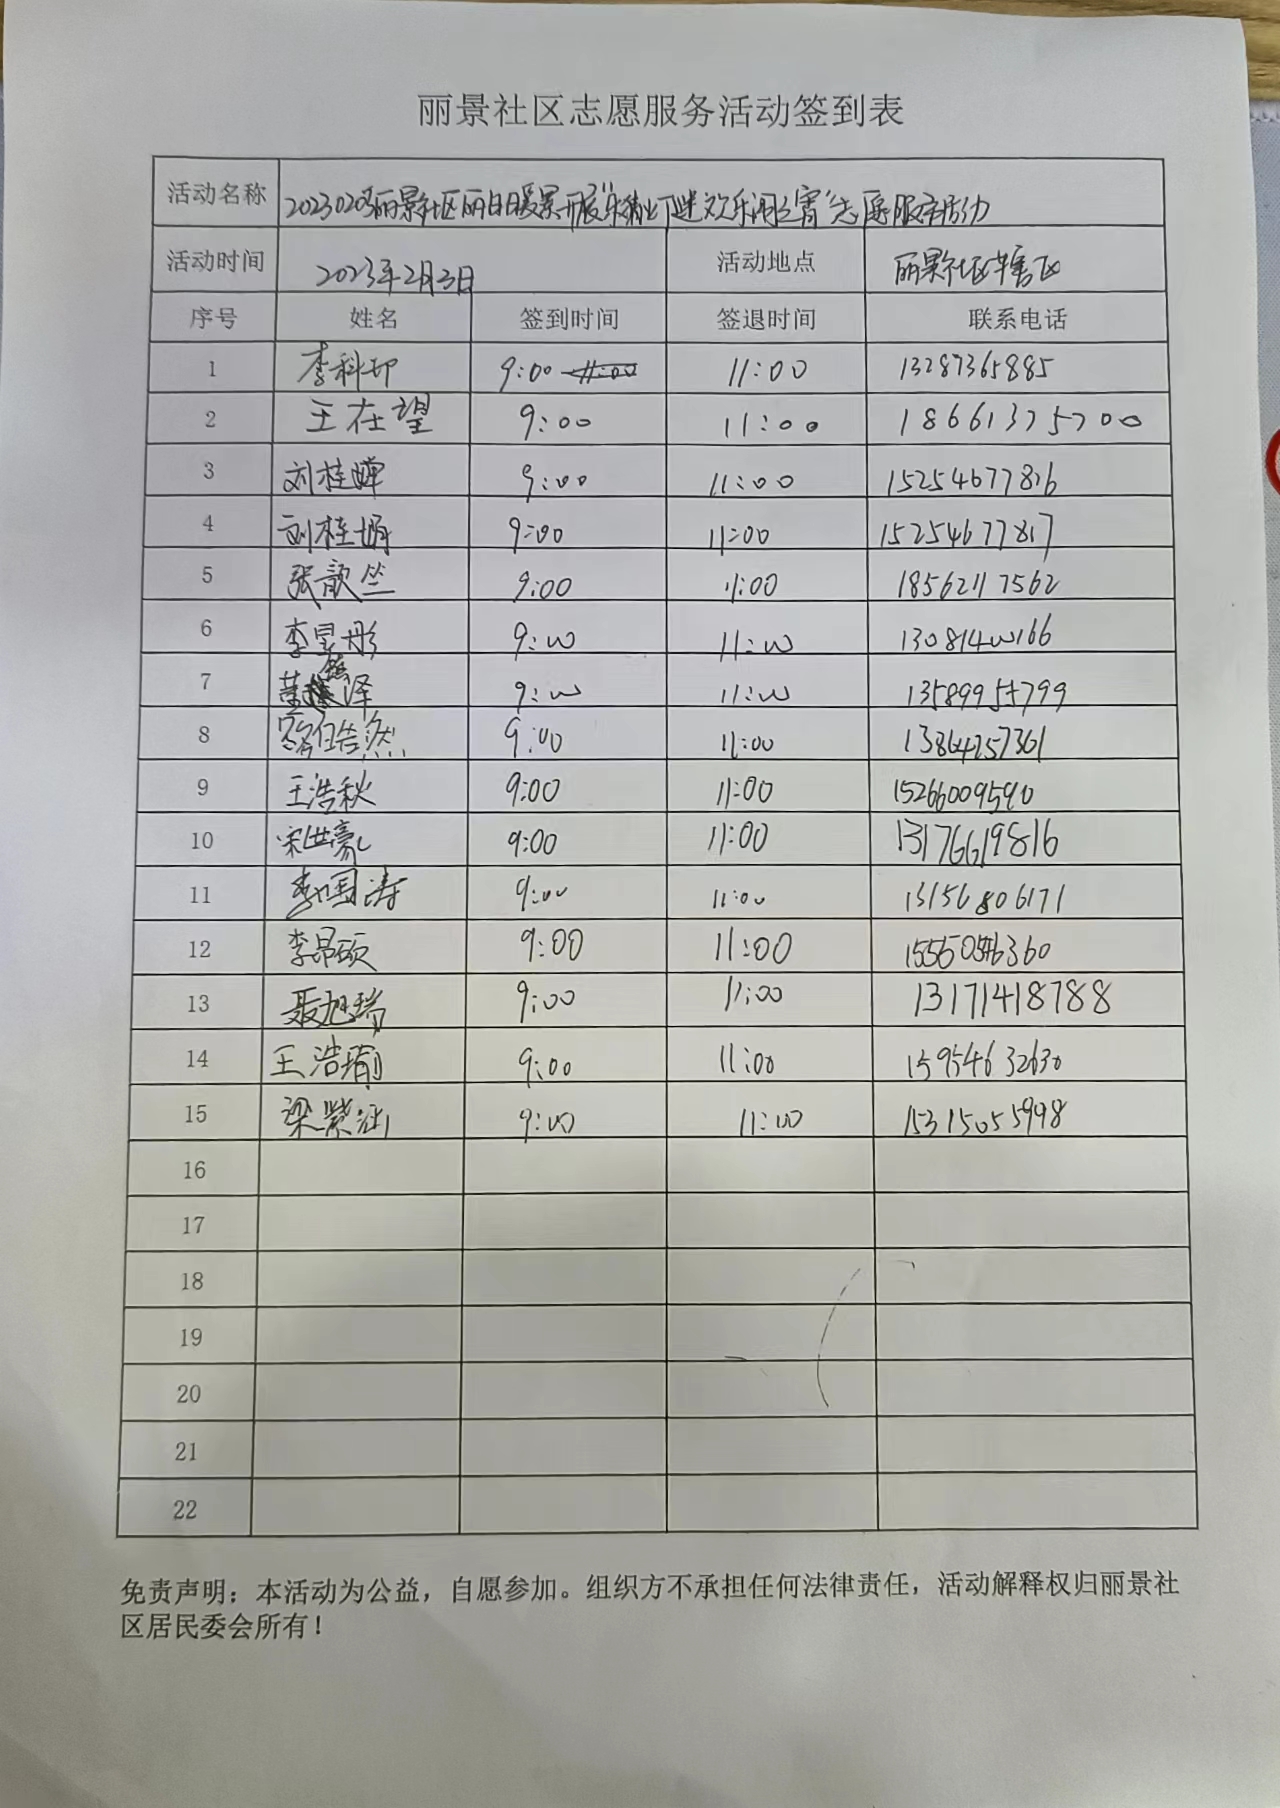 丽景社区志愿服务活动签到表
活动名称 20230203丽景社区丽日暖景开展"乐猜灯谜 欢乐闹元宵"志愿服务活动
活动时间 2023年2月3日 活动地点 丽景社区辖区
序号 姓名 签到时间 签退时间 联系电话
1 李科邛 9:00 11:00 13287365885
2 王在望 9:00 11:00 18661375700
3 刘桂婵 9:00 11:00 15254677816
4 刘桂娟 9:00 11:00 15254677817
5 张歆竺 9:00 11:00 18562117562
6 李昱彤 9:00 11:00 13081400166
7 9:00 11:00
8 9:00 11:00 13864257361
9 王浩秋 9:00 11:00 15266009590
10 宋世豪 9:00 11:00 13176619816
11 李国涛 9:00 11:00 13156806171
12 李昂硕 9:00 11:00
13 聂旭瑞 9:00 11:00 13171418788
14 王浩瑜 9:00 11:00 15954632630
15 梁紫涵 9:00 11:00 15315055998
16
17
18
19
20
21
22
免责声明：本活动为公益，自愿参加。组织方不承担任何法律责任，活动解释权归丽景社
区居民委会所有！